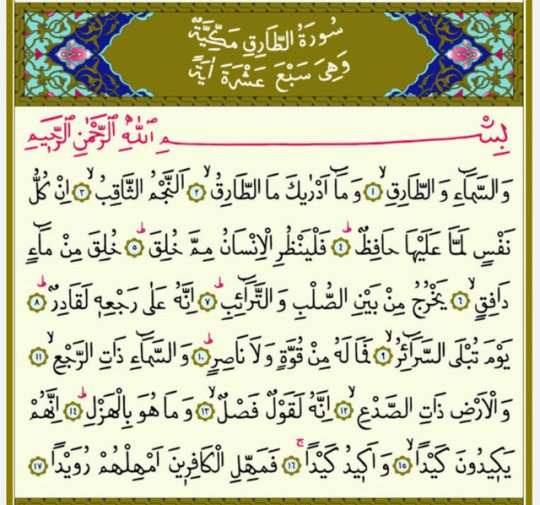 سُورَةُ الطَّارِقِ مَكِّيَّةٌ
وَهِيَ سَبْعَ عَشْرَةَ اٰيَةً
بِسْمِ اللّٰهِ الرَّحْمٰنِ الرَّحٖيمِ
وَالسَّمَٓاءِ وَالطَّارِقِۙ ﴿١﴾ وَمَٓا اَدْرٰيكَ مَا الطَّارِقُۙ ﴿٢﴾ اَلنَّجْمُ الثَّاقِبُۙ ﴿٣﴾ اِنْ كُلُّ
نَفْسٍ لَمَّا عَلَيْهَا حَافِظٌۜ ﴿٤﴾ فَلْيَنْظُرِ الْاِنْسَانُ مِمَّ خُلِقَۜ ﴿٥﴾ خُلِقَ مِنْ مَٓاءٍ
دَافِقٍۙ ﴿٦﴾ يَخْرُجُ مِنْ بَيْنِ الصُّلْبِ وَالتَّرَٓائِبِۜ ﴿٧﴾ اِنَّهُ عَلٰى رَجْعِهٖ لَقَادِرٌۜ ﴿٨﴾
يَوْمَ تُبْلَى السَّرَٓائِرُۙ ﴿٩﴾ فَمَا لَهُ مِنْ قُوَّةٍ وَلَا نَاصِرٍۜ ﴿١٠﴾ وَالسَّمَٓاءِ ذَاتِ الرَّجْعِۙ ﴿١١﴾
وَالْاَرْضِ ذَاتِ الصَّدْعِۙ ﴿١٢﴾ اِنَّهُ لَقَوْلٌ فَصْلٌۙ ﴿١٣﴾ وَمَا هُوَ بِالْهَزْلِۜ ﴿١٤﴾ اِنَّهُمْ
يَكٖيدُونَ كَيْدًاۙ ﴿١٥﴾ وَاَكٖيدُ كَيْدًاۚ ﴿١٦﴾ فَمَهِّلِ الْكَافِرٖينَ اَمْهِلْهُمْ رُوَيْدًا ﴿١٧﴾